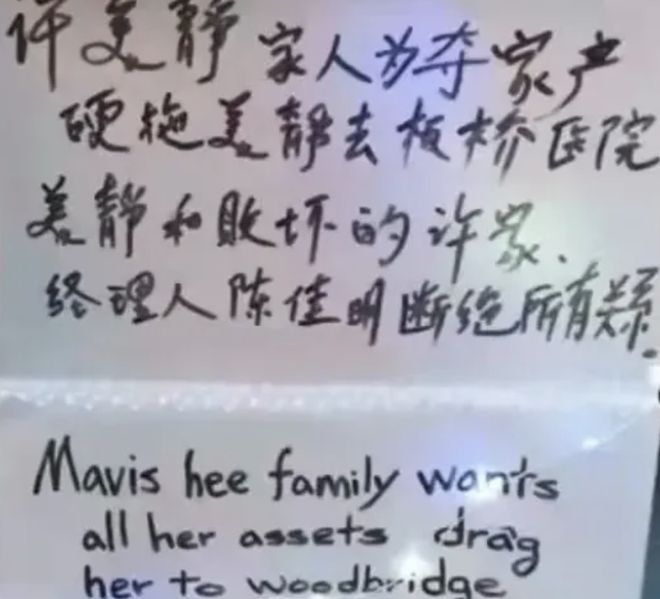 许美静家人为夺家产
硬拖美静去板桥医院
美静和败坏的许家、
终理人陈佳明断绝所有关系。
Mavis hee family wants
all her assets drag
her to woodbridge